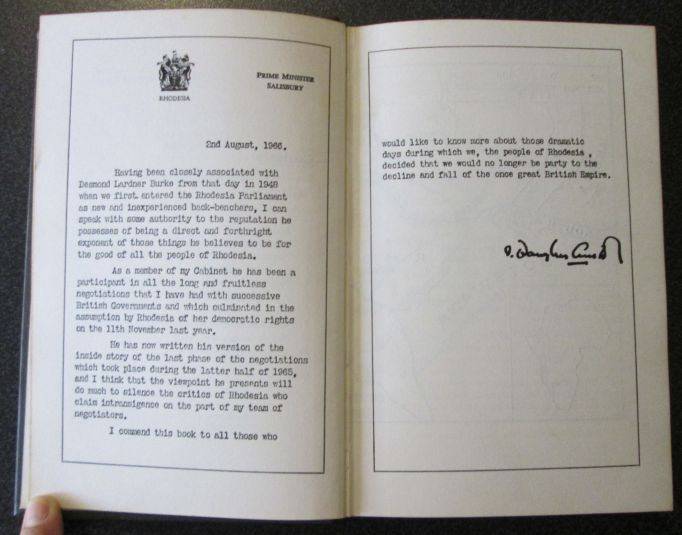 RHODESIA
PRIME MINISTER
SALISBURY
2nd August, 1966.
Having been closely associated with
Desmond Lardner Burke from that day in 1948
when we first entered the Rhodesia Parliament
as new and inexperienced back-benchers, I can
speak with some authority to the reputation he
possesses of being a direct and forthright
exponent of those things he believes to be for
the good of all the people of Rhodesia.
As a member of my Cabinet he has been a
participant in all the long and fruitless
negotiations that I have had with successive
British Governments and which culminated in the
assumption by Rhodesia of her democratic rights
on the 11th November last year.
He has now written his version of the
inside story of the last phase of the negotiations
which took place during the latter half of 1965,
and I think that the viewpoint he presents will
do much to silence the critics of Rhodesia who
claim intransigence on the part of my team of
negotiators.
I commend this book to all those who
would like to know more about those dramatic
days during which we, the people of Rhodesia ,
decided that we would no longer be party to the
decline and fall of the once great British Empire.